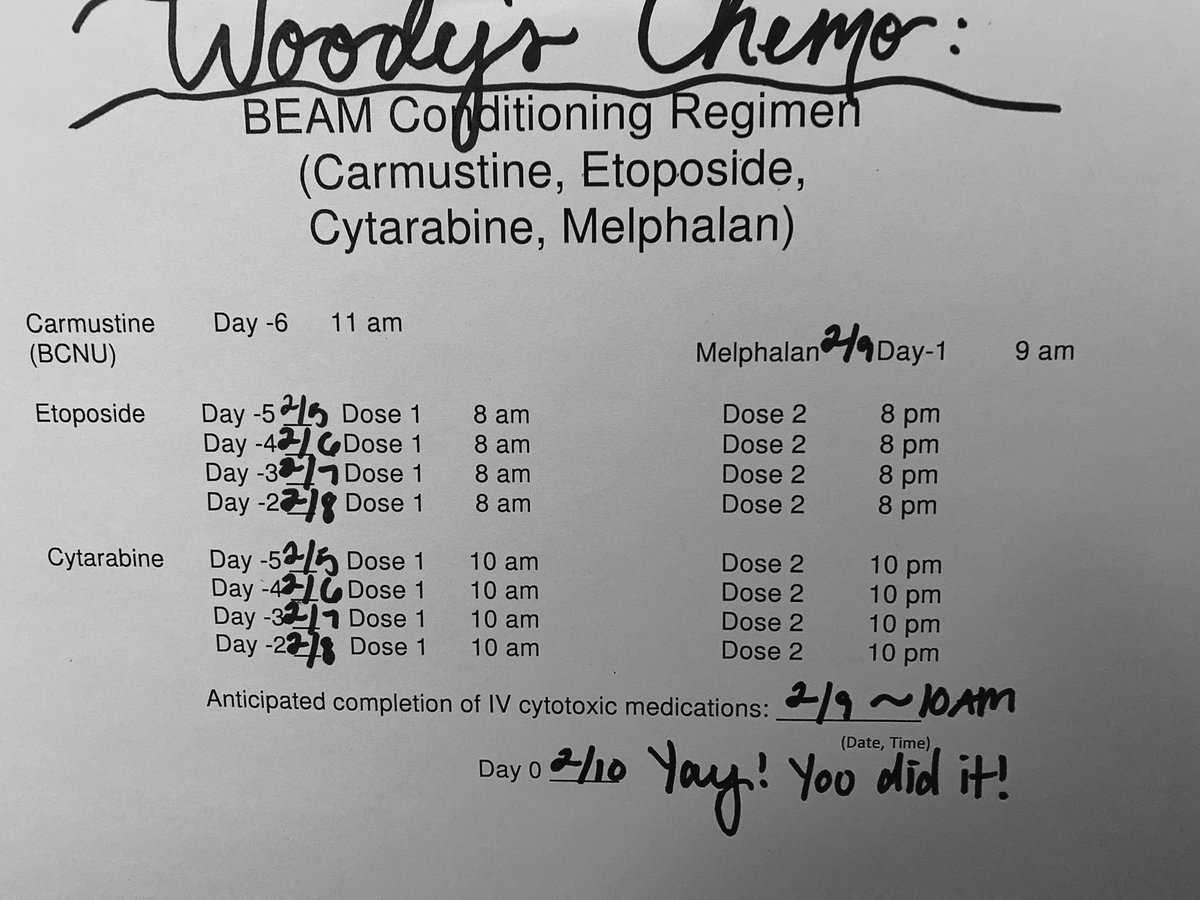 Woody's Chemo:
BEAM Conditioning Regimen
(Carmustine, Etoposide,
Cytarabine, Melphalan)
Carmustine Day -6 11 am
(BCNU)
Melphalan 2/9 Day-1 9 am
Etoposide Day -5 2/5 Dose 1 8 am Dose 2 8 pm
Day -4 2/6 Dose 1 8 am Dose 2 8 pm
Day -3 2/7 Dose 1 8 am Dose 2 8 pm
Day -2 2/8 Dose 1 8 am Dose 2 8 pm
Cytarabine Day -5 2/5 Dose 1 10 am Dose 2 10 pm
Day -4 2/6 Dose 1 10 am Dose 2 10 pm
Day -3 2/7 Dose 1 10 am Dose 2 10 pm
Day -2 2/8 Dose 1 10 am Dose 2 10 pm
Anticipated completion of IV cytotoxic medications: 2/9 ~10AM
(Date, Time)
Day 0 2/10 Yay! You did it!